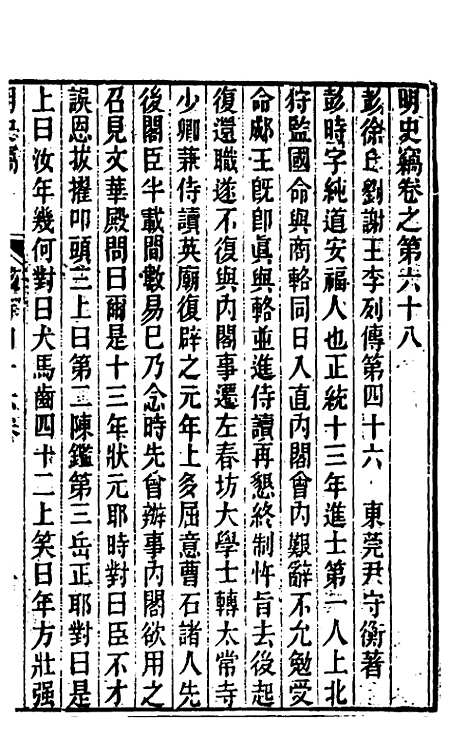 明史竊卷之第六十八
彭徐丘劉謝王李列傳第四十六　東莞尹守衡著
彭時字純道安福人也正統十三年進士第一人上北
狩監國命與商輅同日入直內閣會內艱辭不允勉受
命郕王既即眞與輅並進侍讀再懇終制忤旨去後起
復還職遂不復與內閣事遷左春坊大學士轉太常寺
少卿兼侍讀英廟復辟之元年上多屈意曹石諸人先
後閣臣半載間數易巳乃念時先曾辦事內閣欲用之
召見文華殿問曰爾是十三年狀元耶時對曰臣不才
誤恩拔擢叩頭三上曰第二陳鑑第三岳正耶對曰是
上曰汝年幾何對曰犬馬齒四十二上笑曰年方壯强